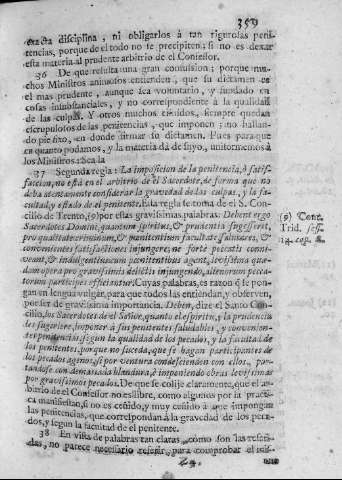 359
exacta disciplina, ni obligarlos à tan rigurosas peni-
tencias, porque de el todo no se precipiten; si no es dexar
esta materia al prudente arbitrio de el Confesor.
36 De que resulta una gran confusion; porque mu-
chos Ministros animosos entienden, que su dictamen es
el mas prudente, aunque sea voluntario, y fundado en
cosas insubstanciales, y no correspondiente à la qualidad
de las culpas. Y otros muchos timidos, siempre quedan
escrupulosos de las penitencias, que imponen; no hallan-
do pie fixo, en donde firmar su dictamen. Pues para que
en quanto podamos, y la materia dà de suyo, uniformemos à
los Ministros. Sea la
37 Segunda regla: La imposicion de la penitencia, ò satis-
faccion, no està en el arbitrio de el Sacerdote, de forma que no
deba atentamente considerar la gravedad de las culpas, y la fa-
cultad, y estado de el penitente. Esta regla se toma de el S. Con-
cilio de Trento, (9) por estas gravissimas palabras: Debent ergo
Sacerdotes Domini, quantum spiritus, & prudentia suggesserit,
pro qualitate criminum, & pœnitentium facultate, salutares, &
convenientes satisfactiones injungere; ne forte peccatis conni-
veant, & indulgentius cum pœnitentibus agant, levissima quæ-
dam opera pro gravissimis delictis injungendo, alienorum pecca-
torum participes efficiantur. Cuyas palabras, es razon q̃ se pon-
gan en lengua vulgar, para que todos las entiendan, y observen,
por ser de gravissima importancia. Deben, dize el Santo Con-
cilio, los Sacerdotes de el Señor, quanto el espiritu, y la prudencia
les sugiriere, imponer à sus penitentes saludables, y convenien-
tes penitencias, segun la qualidad de los pecados, y la facultad de
los penitentes; porque no suceda, que se hagan participantes de
los pecados agenos, si por ventura condescienden con ellos, por-
tandose con demasiada blandura, è imponiendo obras levissimas
por gravissimos pecados. De que se colije claramente, que el ar-
bitrio de el Confesor no es libre, como algunos por la practi-
ca manifiestan, si no es ceñido, y muy ceñido à que impongan
las penitencias, que correspondan à la gravedad de los peca-
dos, y segun la facultad de el penitente.
38 En vista de palabras tan claras, como son las referi-
das, no parece necesario referir, para comprobar el mis-
(9) Conc.
Trid. ses.
14. cap. 8.